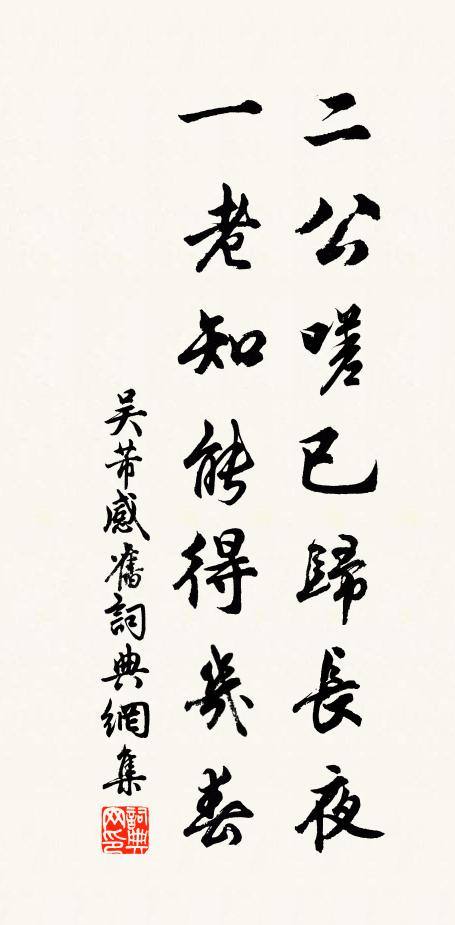 二公嗟已歸長夜
一老知能得幾春
吳芾感舊詞典網集
詞典网印